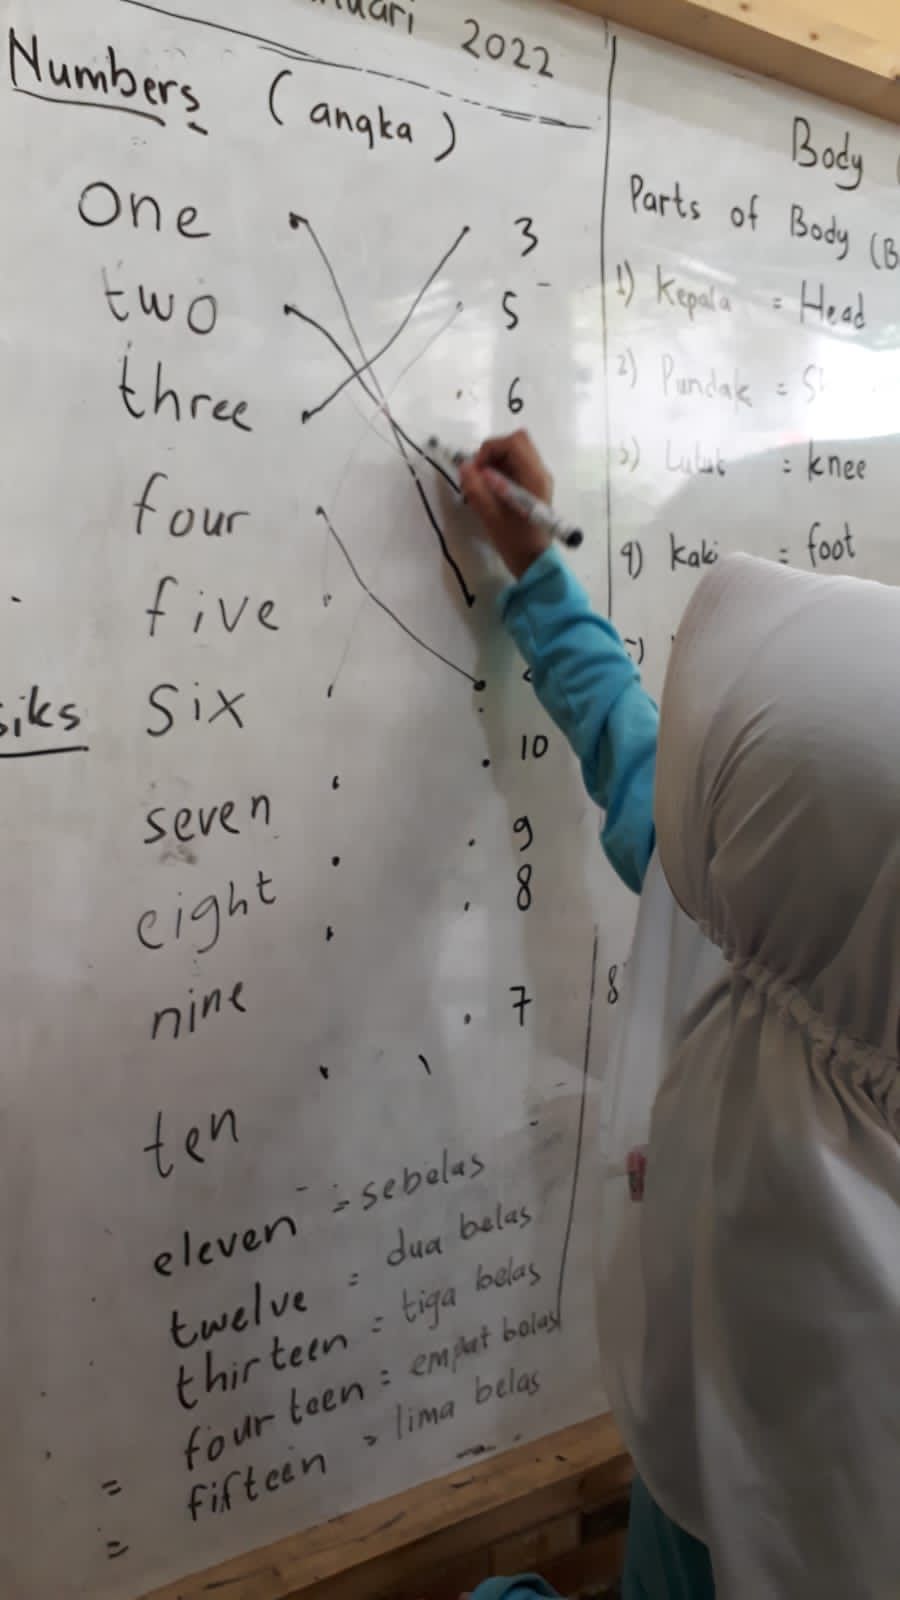 2022
Numbers (angka)
one
3
two
5
three
6
four
five
siks
six
10
seven
9
eight
8
nine
7
ten
eleven = sebelas
twelve = dua belas
thirteen = tiga belas
four teen = empat bolas
fifteen = lima belas
Body
Parts of Body (B
1) Kepala = Head
2) Pundak =
3) Lutut = knee
4) kaki = foot
8